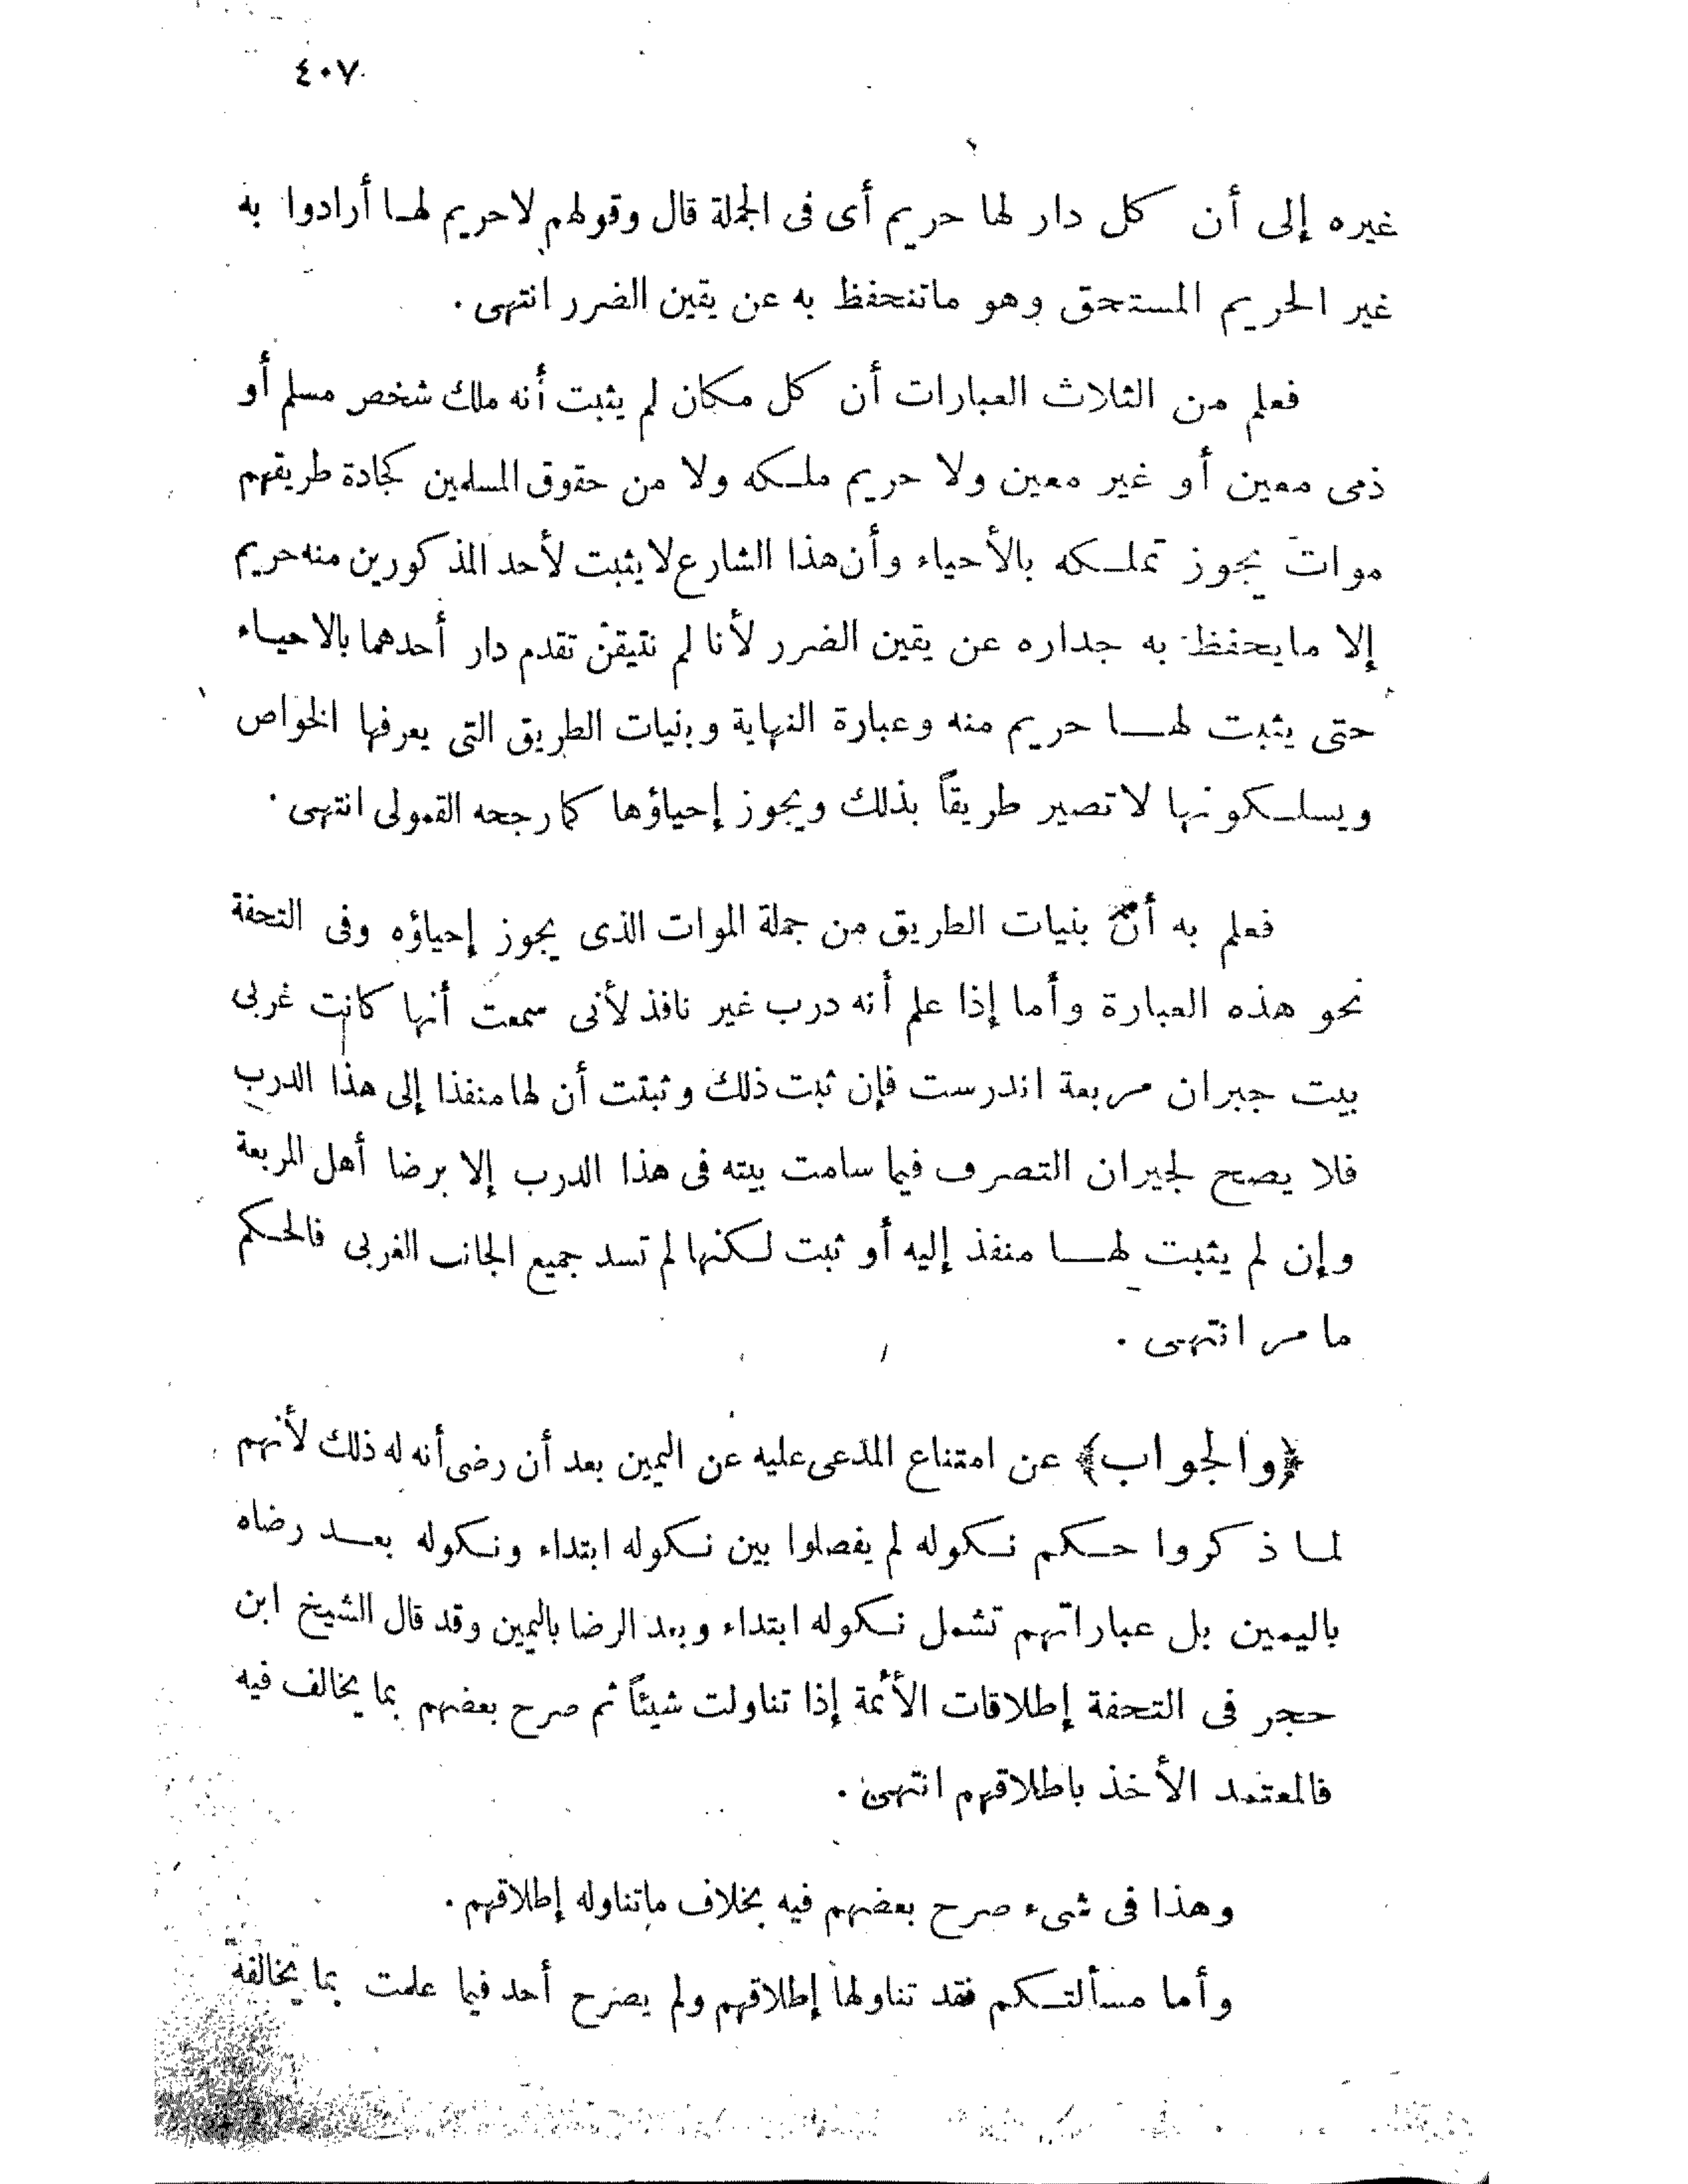 ٤٠٧
غيره إلى أن كل دار لها حريم أى فى الجملة قال وقولهم لاحريم لهـا أرادوا به
غير الحريم المستحق وهو ماتنحفظ به عن يقين الضرر انتهى .
فعلم من الثلاث العبارات أن كل مكان لم يثبت أنه ملك شخص مسلم أو
ذمى معين أو غير معين ولا حريم ملـكه ولا من حقوق المسلمين كجادة طريقهم
موات يجوز تملـكه بالأحياء وأن هذا الشارع لايثبت لأحد المذكورين منه حريم
إلا مايحفظ به جداره عن يقين الضرر لأنا لم نتيقن تقدم دار أحدهما بالاحيـاء
حتى يثبت لهـــا حريم منه وعبارة النهاية وبنيات الطريق التى يعرفها الخواص
ويسلـكونها لاتصير طريقاً بذلك ويجوز إحياؤها كما رجحه القمولى انتهى .
فعلم به أن بنيات الطريق من جملة الموات الذى يجوز إحياؤه وفى التحفة
نحو هذه العبارة وأما إذا علم أنه درب غير نافذ لأنى سمعت أنها كانت غربى
بيت جبران مربعة اندرست فإن ثبت ذلك وثبتت أن لها منفذا إلى هذا الدرب
فلا يصح لجيران التصرف فيما سامت بيته فى هذا الدرب إلا برضا أهل المربعة
وإن لم يثبت لهـــا منفذ إليه أو ثبت لـكنها لم تسد جميع الجانب الغربى فالحـكم
ما مر انتهى .
﴿والجواب﴾ عن امتناع المدعى عليه عن اليمين بعد أن رضى أنه له ذلك لأنهم
لمـا ذكروا حـكم نـكوله لم يفصلوا بين نـكوله ابتداء ونـكوله بعـــد رضاه
باليمين بل عباراتهم تشمل نـكوله ابتداء وبعد الرضا باليمين وقد قال الشيخ ابن
حجر فى التحفة إطلاقات الأئمة إذا تناولت شيئاً ثم صرح بعضهم بما يخالف فيه
فالمعتمد الأخذ باطلاقهم انتهى .
وهذا فى شىء صرح بعضهم فيه بخلاف ماتناوله إطلاقهم .
وأما مسألتـكم فقد تناولها إطلاقهم ولم يصرح أحد فيما علمت بما يخالفه